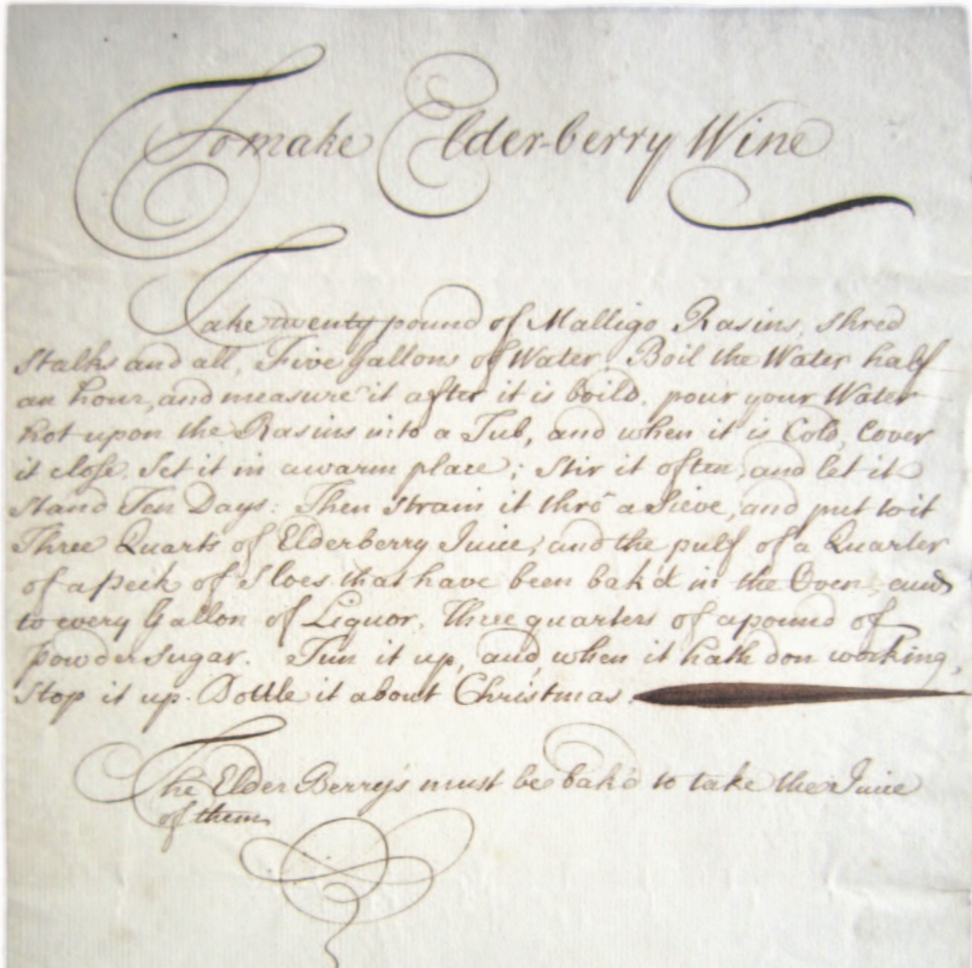 To make Elder-berry Wine
Take twenty pound of Malligo Rasins, shred
Stalks and all, Five Gallons of Water, Boil the Water half
an hour, and measure it after it is boild, pour your Water
hot upon the Rasins into a Tub, and when it is Cold, Cover
it close. Set it in a warm place; Stir it often, and let it
Stand Ten Days: Then Strain it thrô a Sieve, and put to it
Three Quarts of Elderberry Juice, and the pulp of a Quarter
of a peck of Sloes that have been bak'd in the Oven, and
to every Gallon of Liquor, three quarters of a pound of
powder Sugar. Tun it up, and when it hath don working,
Stop it up. Bottle it about Christmas.
The Elder Berry's must be bak'd to take the Juice
of them